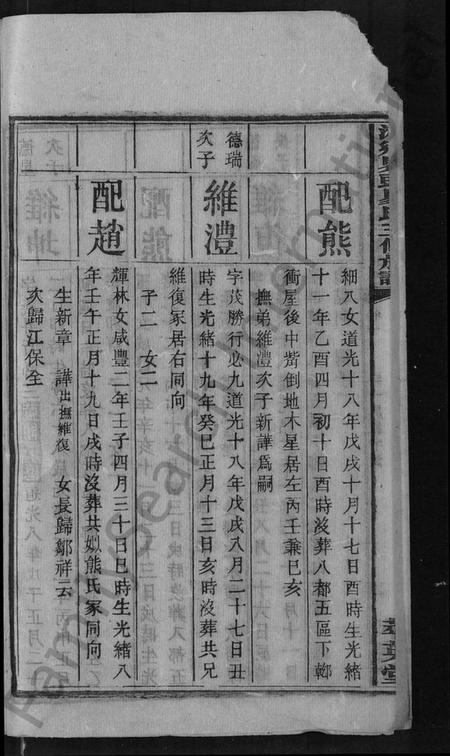 配熊
細八女道光十八年戊戌十月十七日酉時生光緒
十一年乙酉四月初十日酉時沒葬八都五區下鄒
衝屋後中嘴倒地木星居左丙壬兼巳亥
撫弟維澧次子新譁為嗣
德瑞
次子
維澧
字茂勝行必九道光十八年戊戌八月二十七日丑
時生光緒十九年癸巳正月十三日亥時沒葬共兄
維復冢居右同向
子二 女二
配趙
輝林女咸豐二年壬子四月三十日巳時生光緒八
年壬午正月十九日戌時沒葬共姒熊氏冢同向
生新章 譁出撫維復 女長歸鄒祥云
次歸江保全
氏三修族譜
堂
FamilySearch International